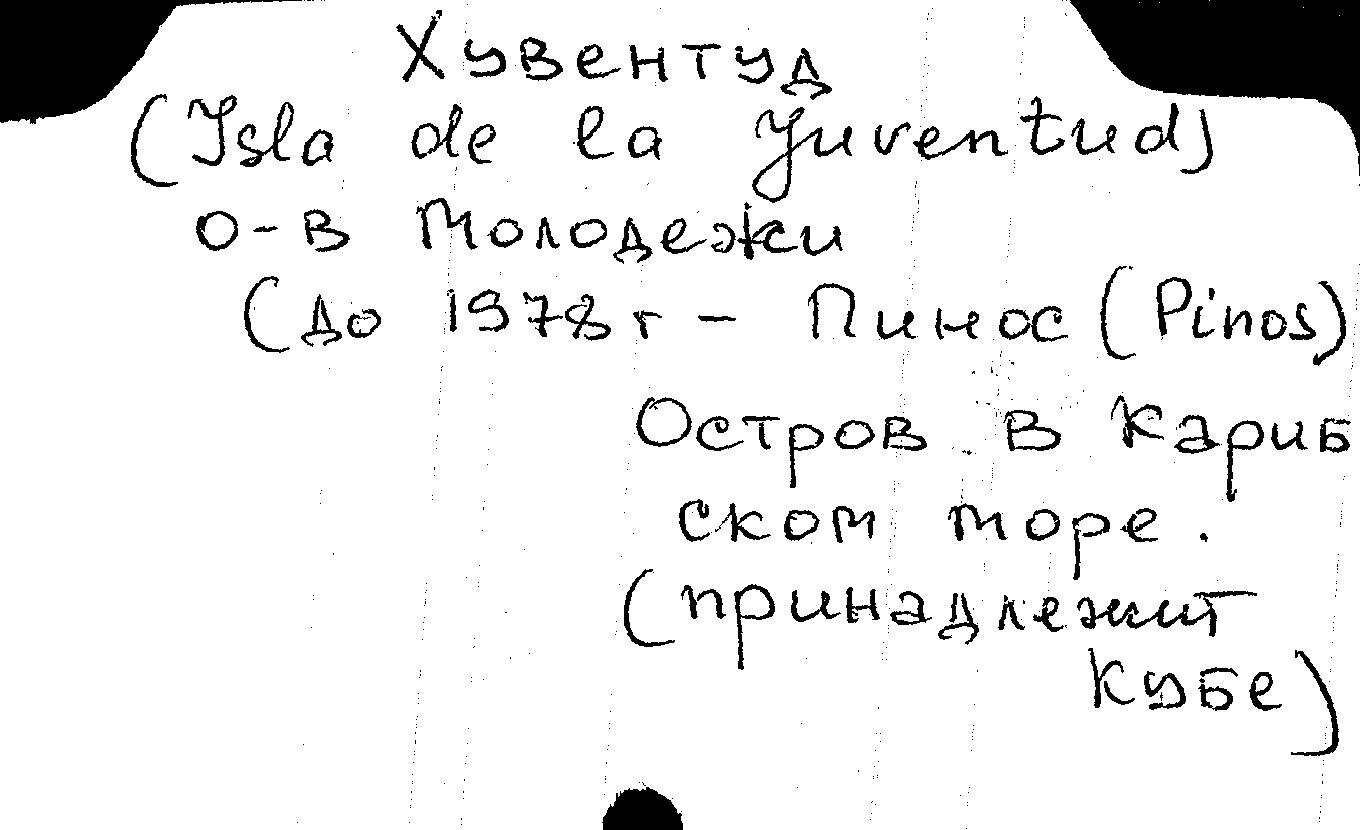 Хувентуд
(Isla de la Juventud)
о-в Молодежи
(до 1978 г - Пинос (Pinos)
Остров в Кариб
ском море.
(принадлежит
Кубе)